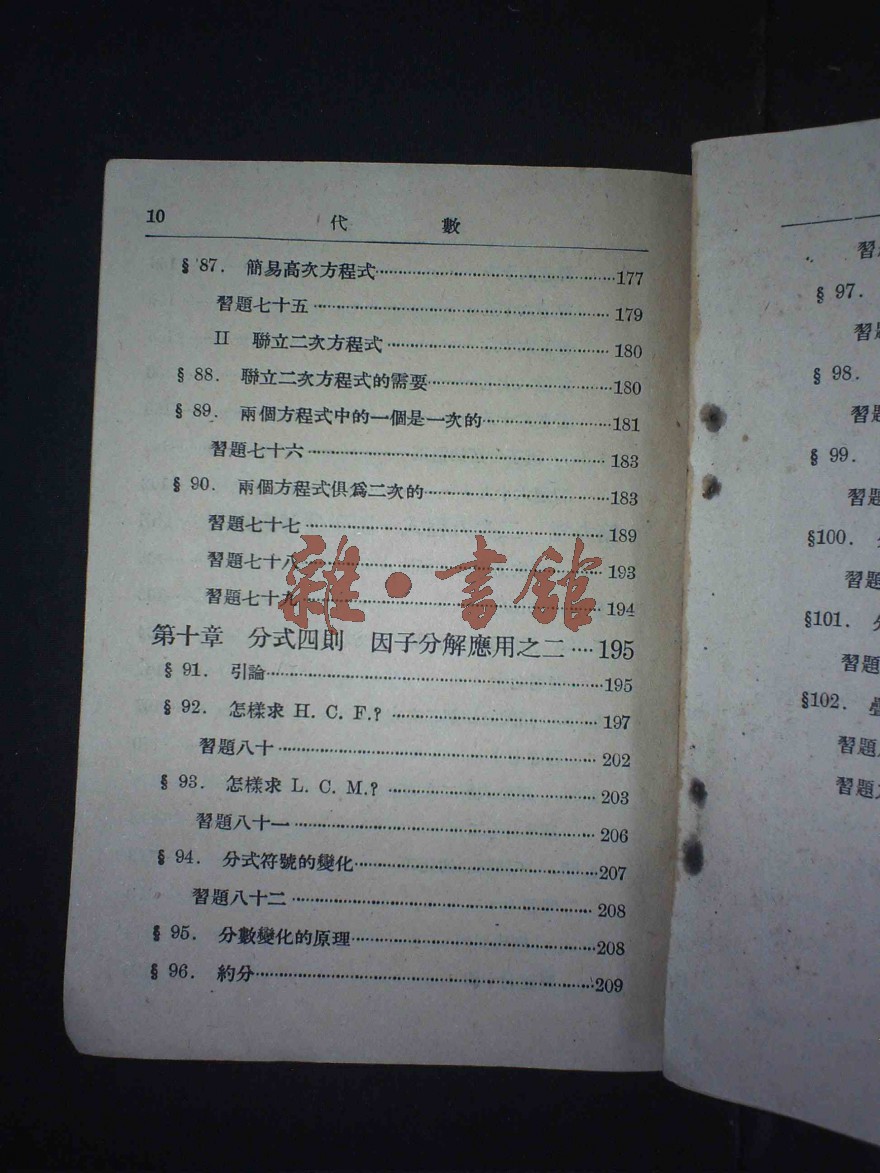 10 代 數
§ 87. 簡易高次方程式……177
習題七十五……179
II 聯立二次方程式……180
§ 88. 聯立二次方程式的需要……180
§ 89. 兩個方程式中的一個是一次的……181
習題七十六……183
§ 90. 兩個方程式俱爲二次的……183
習題七十七……189
習題七十八……193
習題七十九……194
雜·書館
第十章 分式四則 因子分解應用之二……195
§ 91. 引論……195
§ 92. 怎樣求 H. C. F.?……197
習題八十……202
§ 93. 怎樣求 L. C. M.?……203
習題八十一……206
§ 94. 分式符號的變化……207
習題八十二……208
§ 95. 分數變化的原理……208
§ 96. 約分……209
習
§ 97.
習題
§ 98.
習題
§ 99.
習題
§100.
習題
§101.
習題
§102.
習題
習題